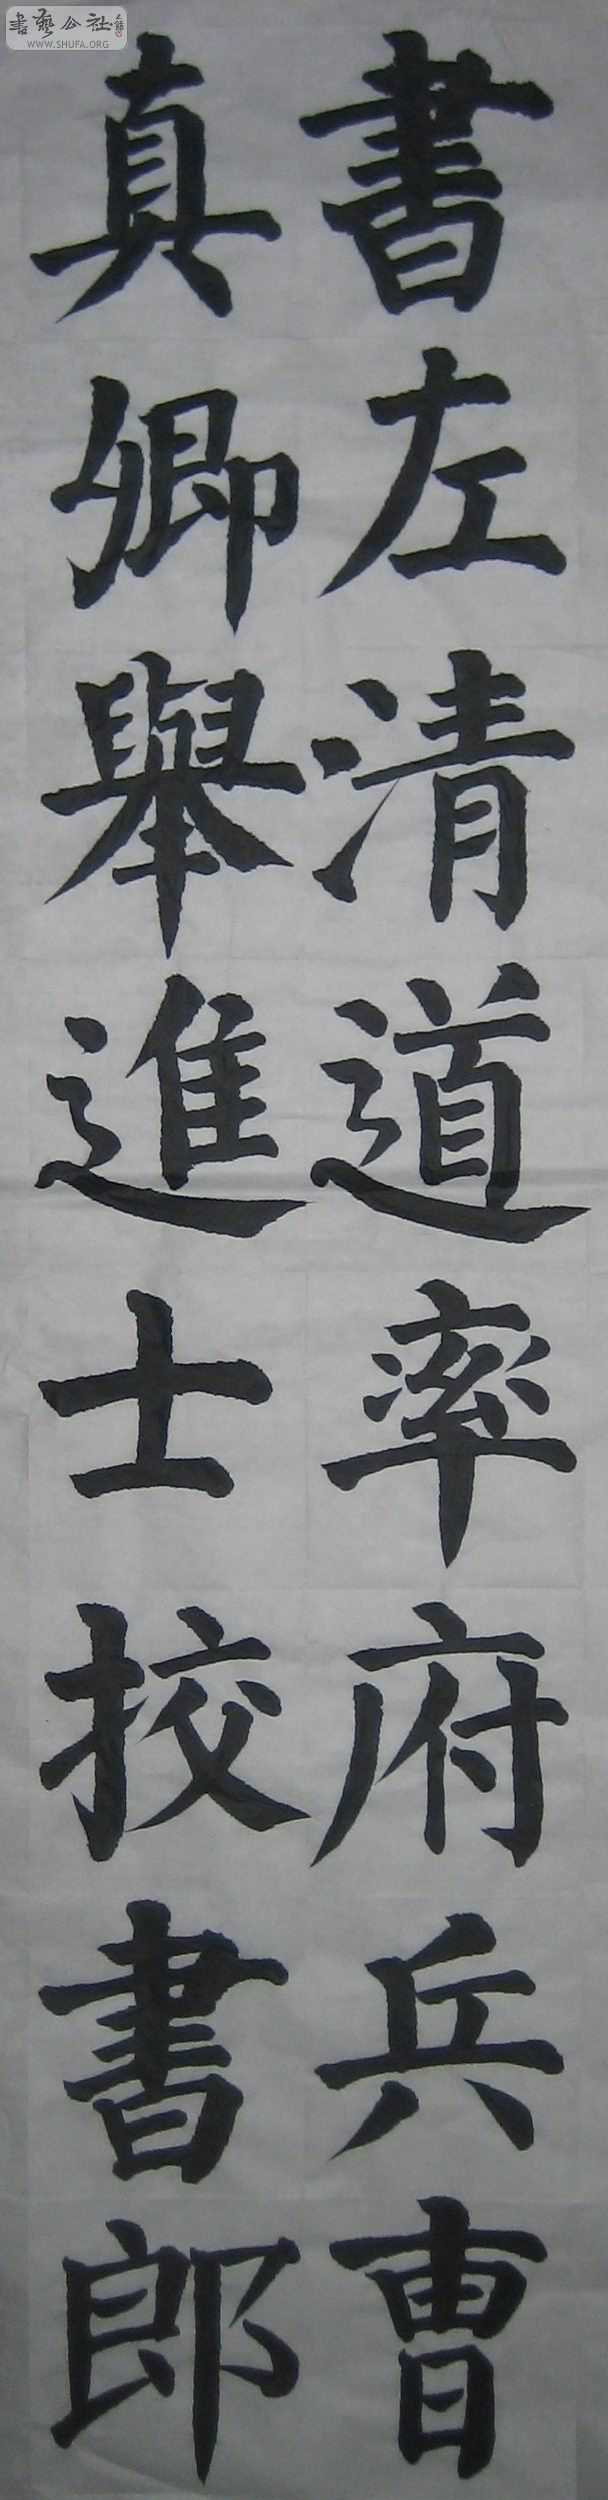 書左清道率府兵曹
真卿舉進士挍書郎
書藝公社
WWW.SHUFA.ORG